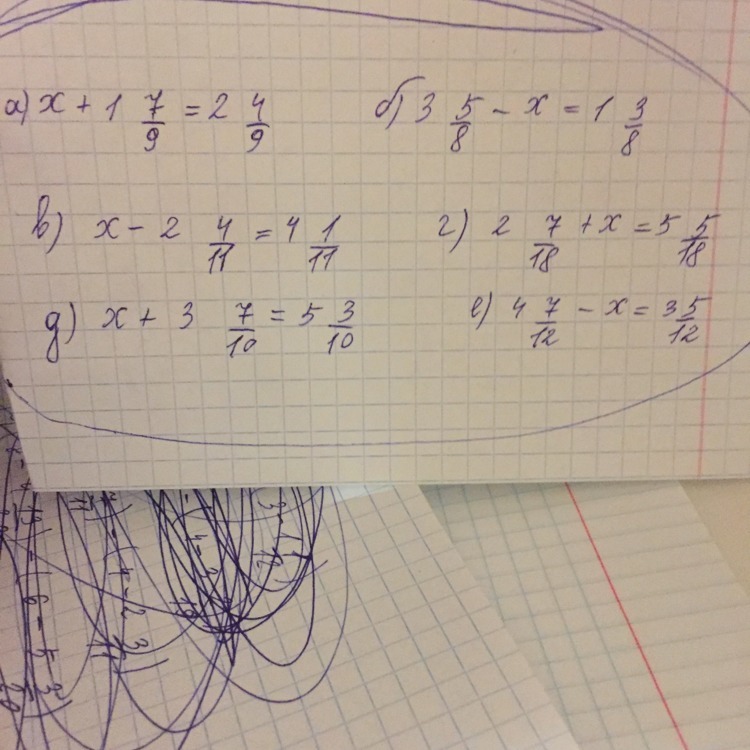 а) x + 1 7/9 = 2 4/9
б) 3 5/8 - x = 1 3/8
в) x - 2 4/11 = 4 1/11
г) 2 7/18 + x = 5 5/18
д) x + 3 7/10 = 5 3/10
е) 4 7/12 - x = 3 5/12